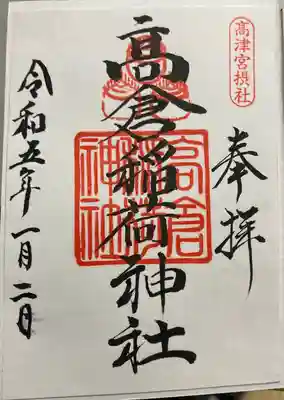 高津宮摂社
奉拝
高倉稲荷神社
高倉稲荷神社
令和五年一月二日